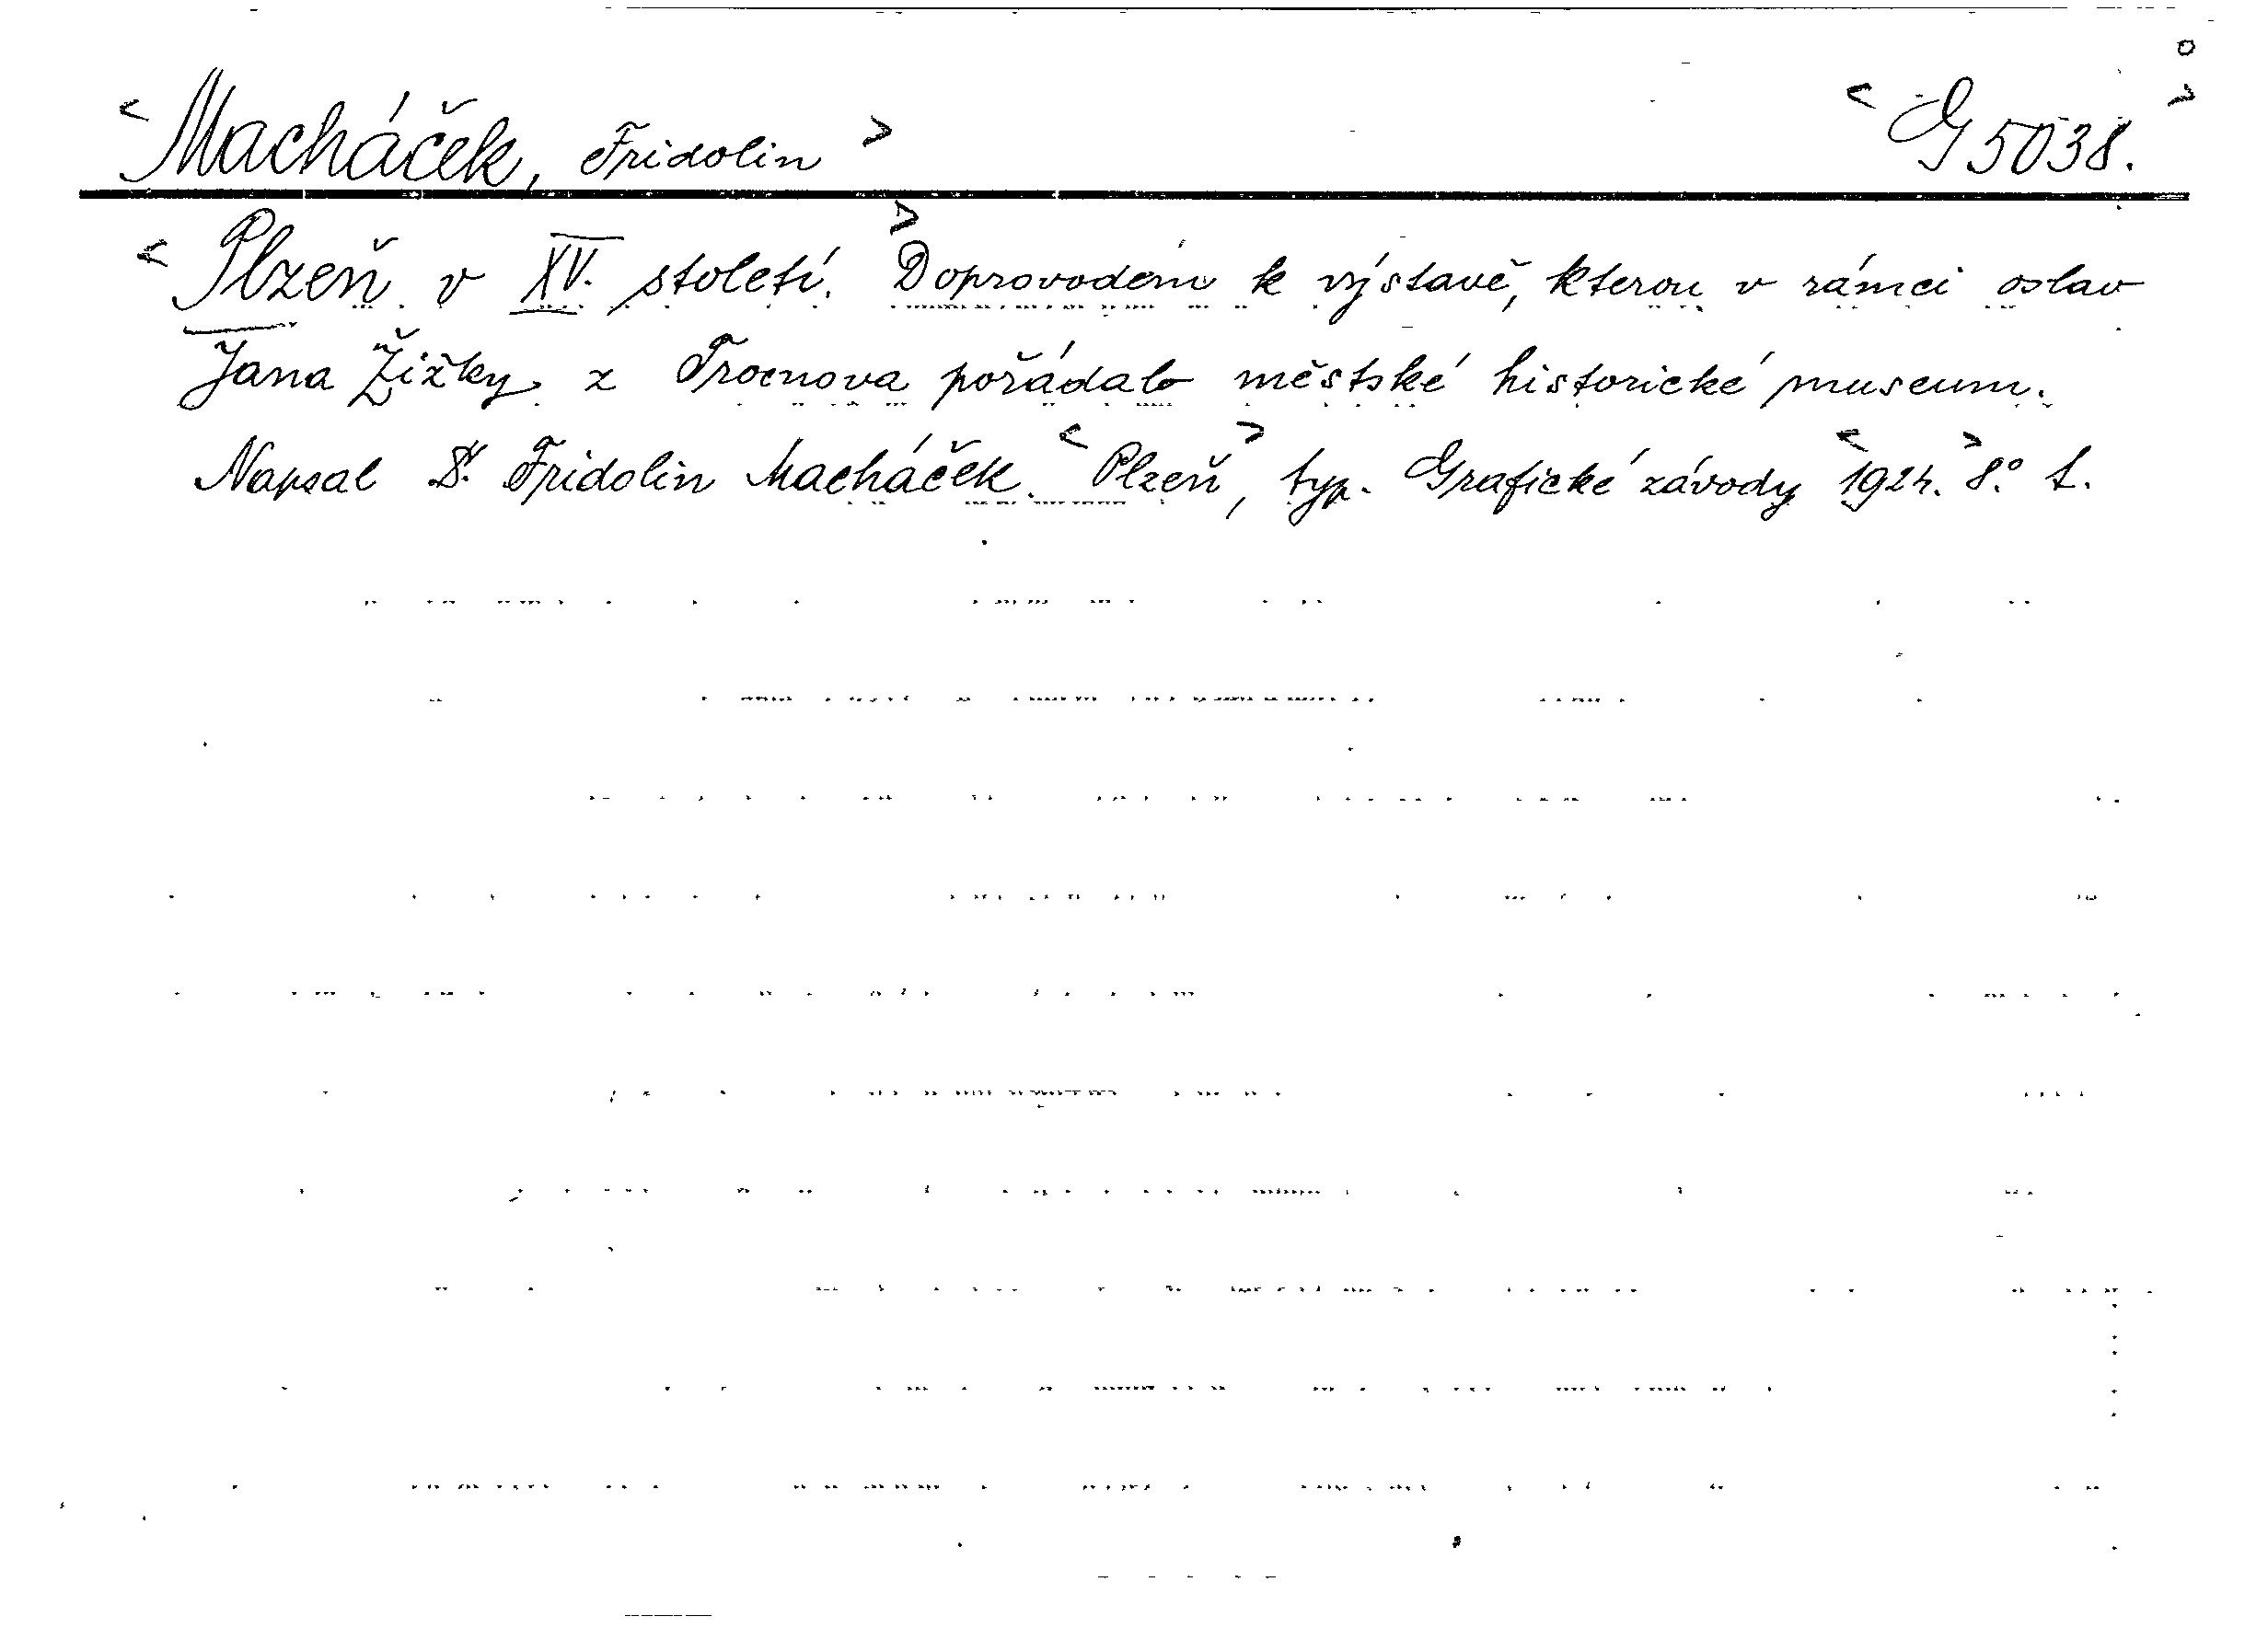 <Macháček, Fridolin> <G 5038.>
<Plzeň v XV. století.> Doprovodem k výstavě, kterou v rámci oslav
Jana Žižky z Trocnova pořádalo městské historické museum.
Napsal Dr. Fridolin Macháček. <Plzeň>, typ. Grafické závody <1924.> 8.°